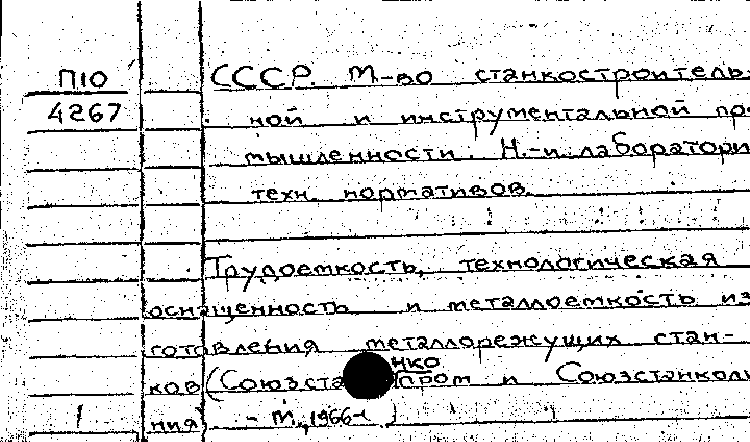 П10
4267
СССР. М-во станкостроитель-
ной и инструментальной про-
мышленности. Н.-и. лаборатори
техн. нормативов.
Трудоемкость, технологическая
оснащенность и металлоемкость из
готовления металлорежущих стан-
нко
ков (Союзста пром и Союзстанколи
ния) - М., 1966-